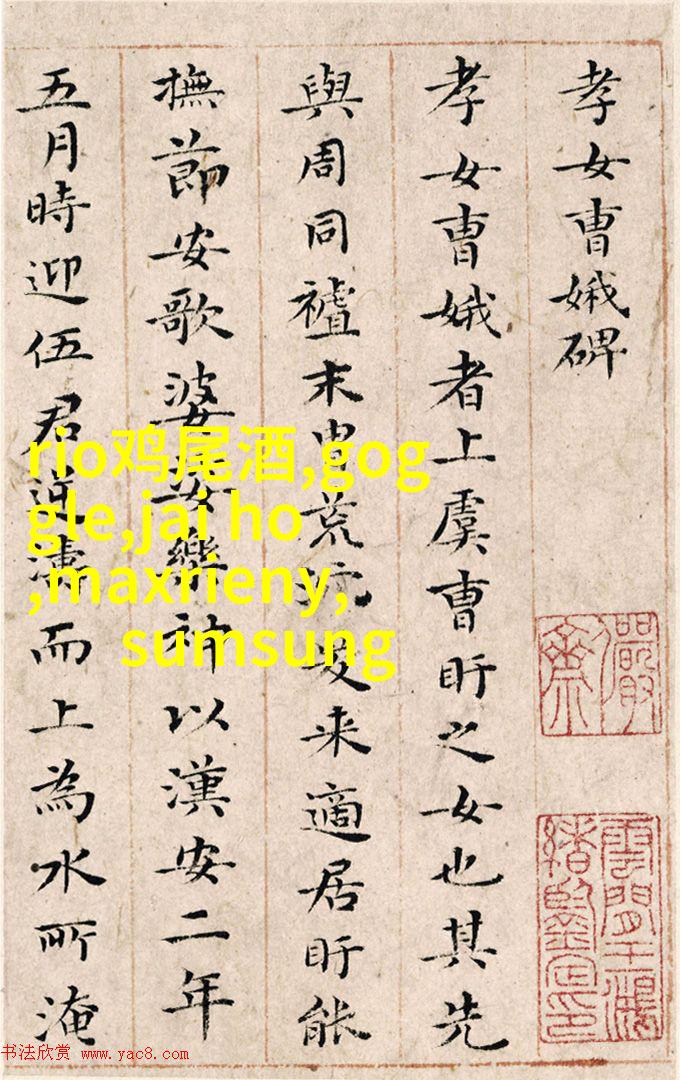 孝女曹娥碑
孝女曹娥者上虞曹盱之女也其先
與周同末胄荒爰来適居盱能
撫節安歌婆娑樂神以漢安二年
五月時迎伍君逆濤而上為水所淹
儼齋
雲間王鴻緒鑒定印
rio鸡尾酒,gog
gle,jai ho
,maxrieny,
sumsung
书法欣赏 www.yac8.com